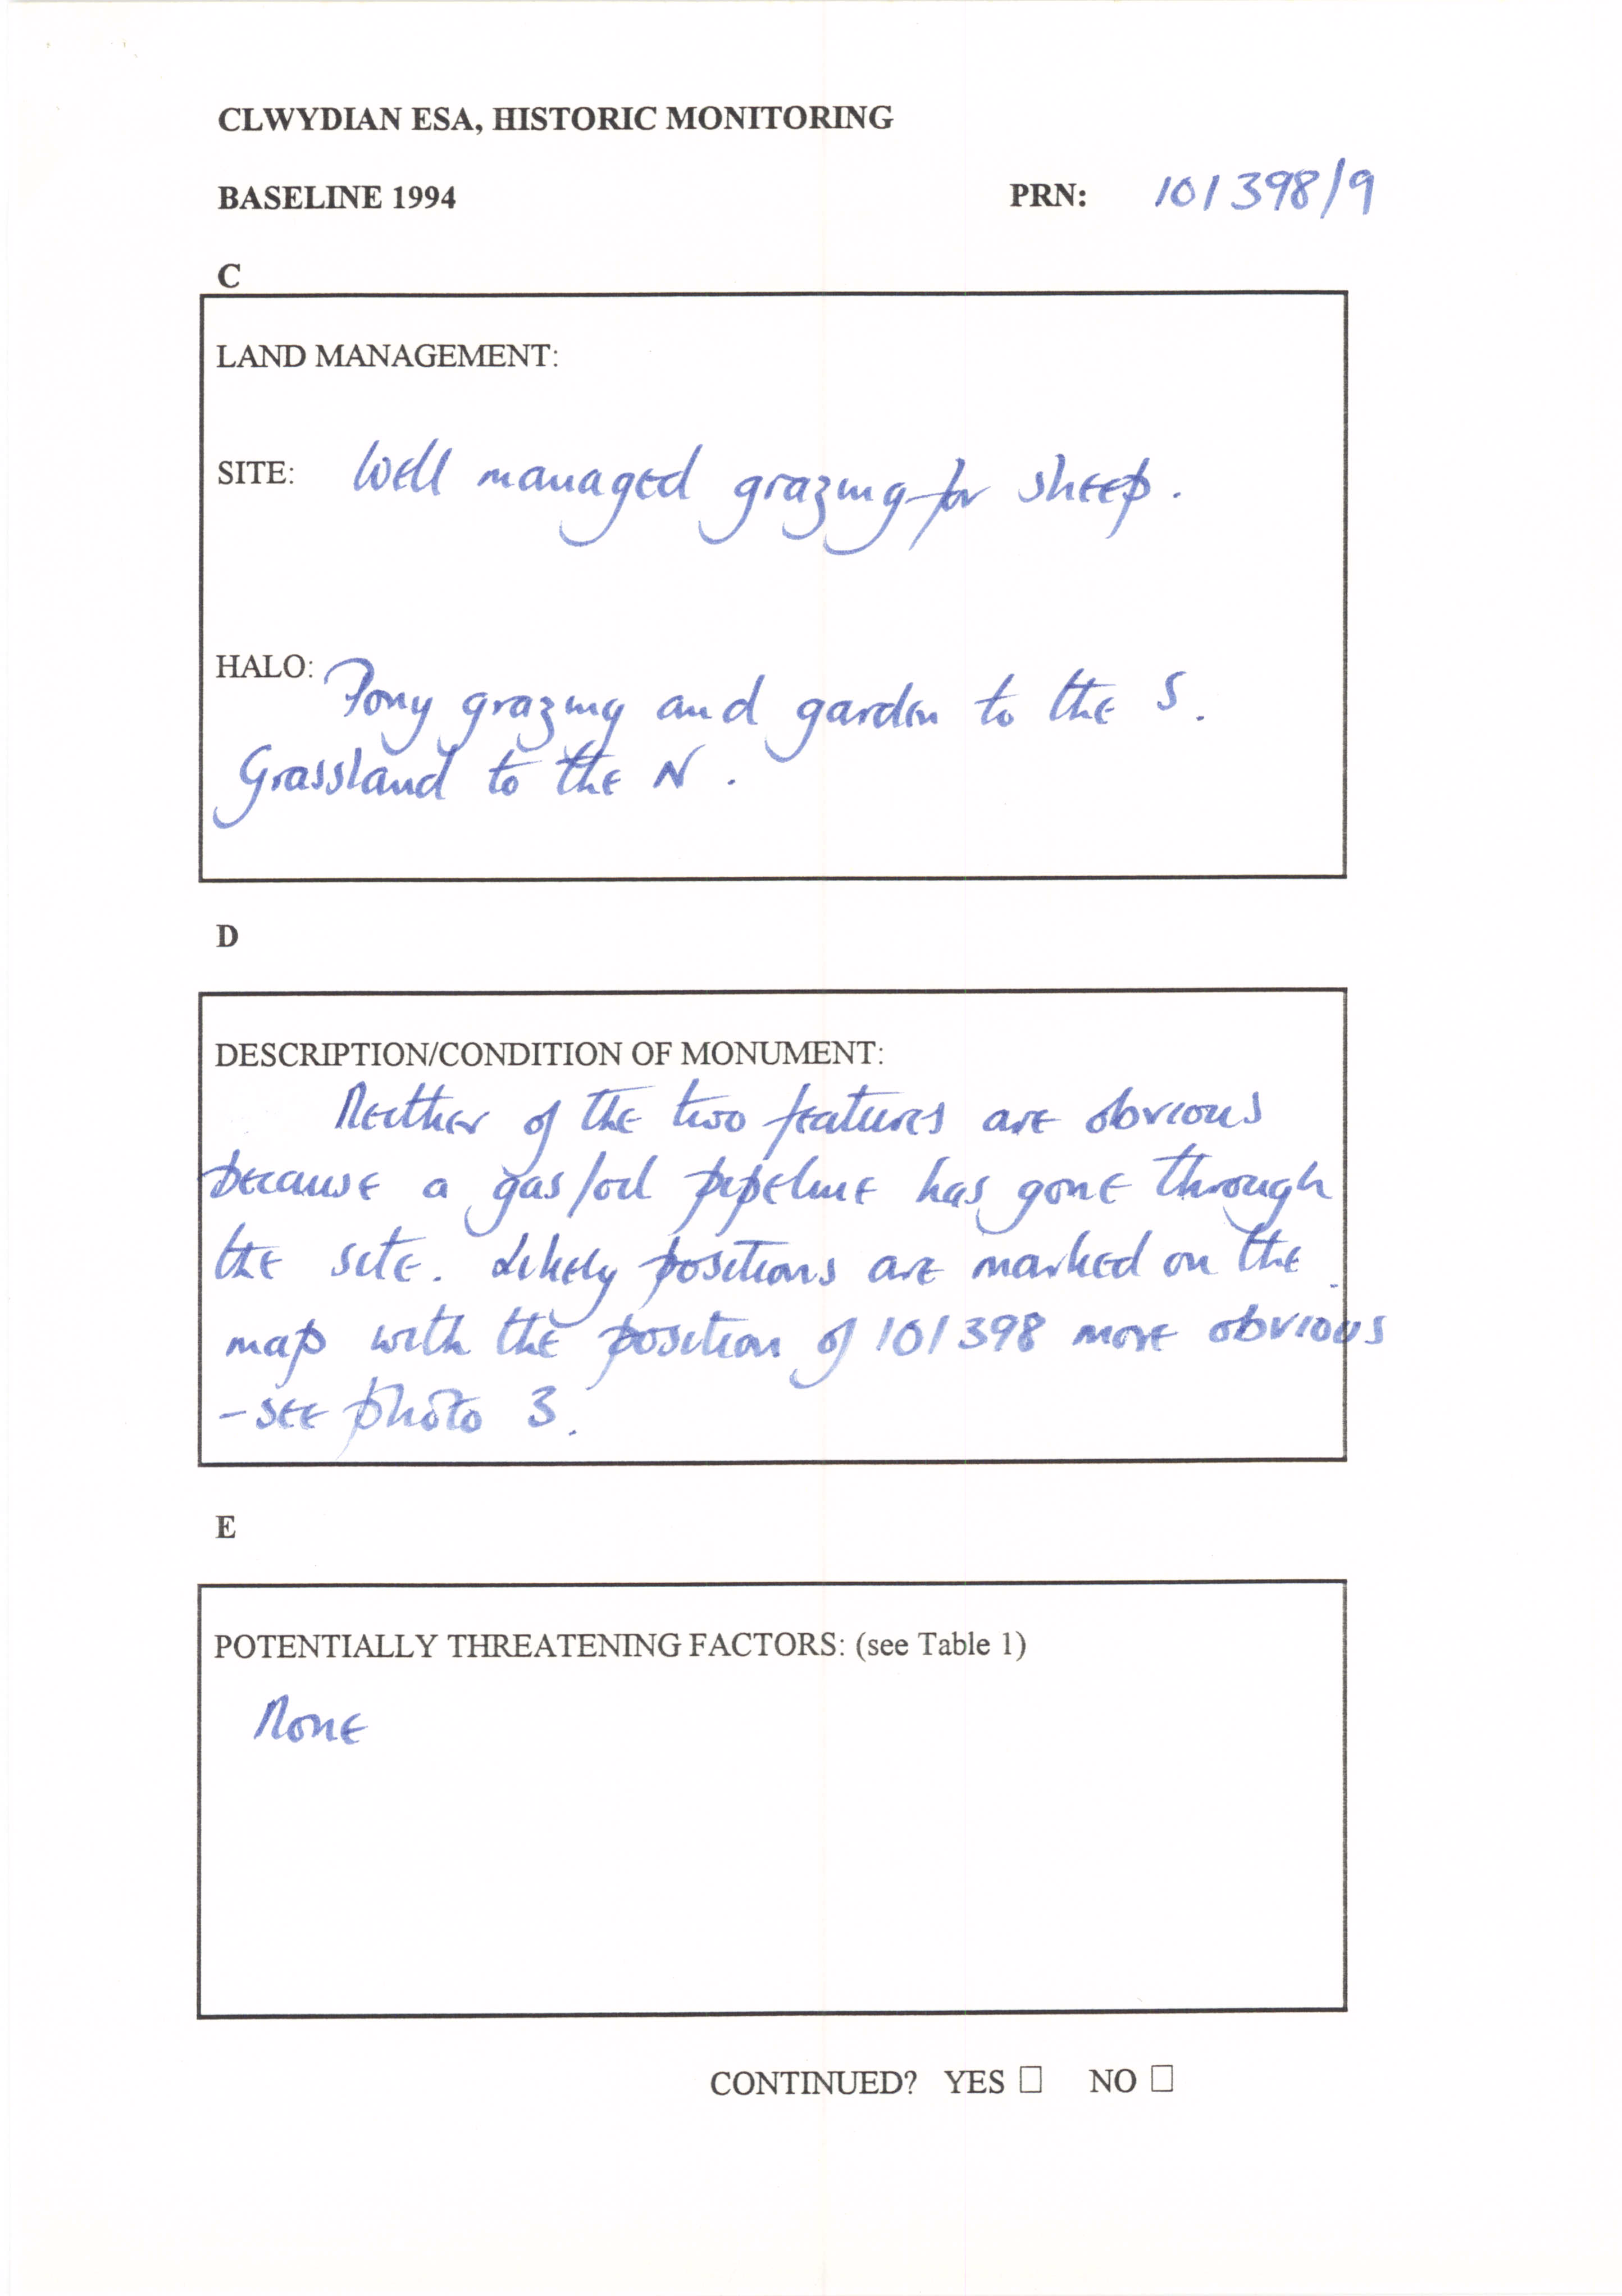 CLWYDIAN ESA, HISTORIC MONITORING
BASELINE 1994 PRN: 101398/9
C
LAND MANAGEMENT:
SITE: Well managed grazing for sheep.
HALO: Pony grazing and garden to the S.
Grassland to the N.
D
DESCRIPTION/CONDITION OF MONUMENT:
Neither of the two features are obvious
because a gas/oil pipeline has gone through
the site. Likely positions are marked on the
map with the position of 101398 more obvious
- see photo 3.
E
POTENTIALLY THREATENING FACTORS: (see Table 1)
None
CONTINUED? YES ☐ NO ☐